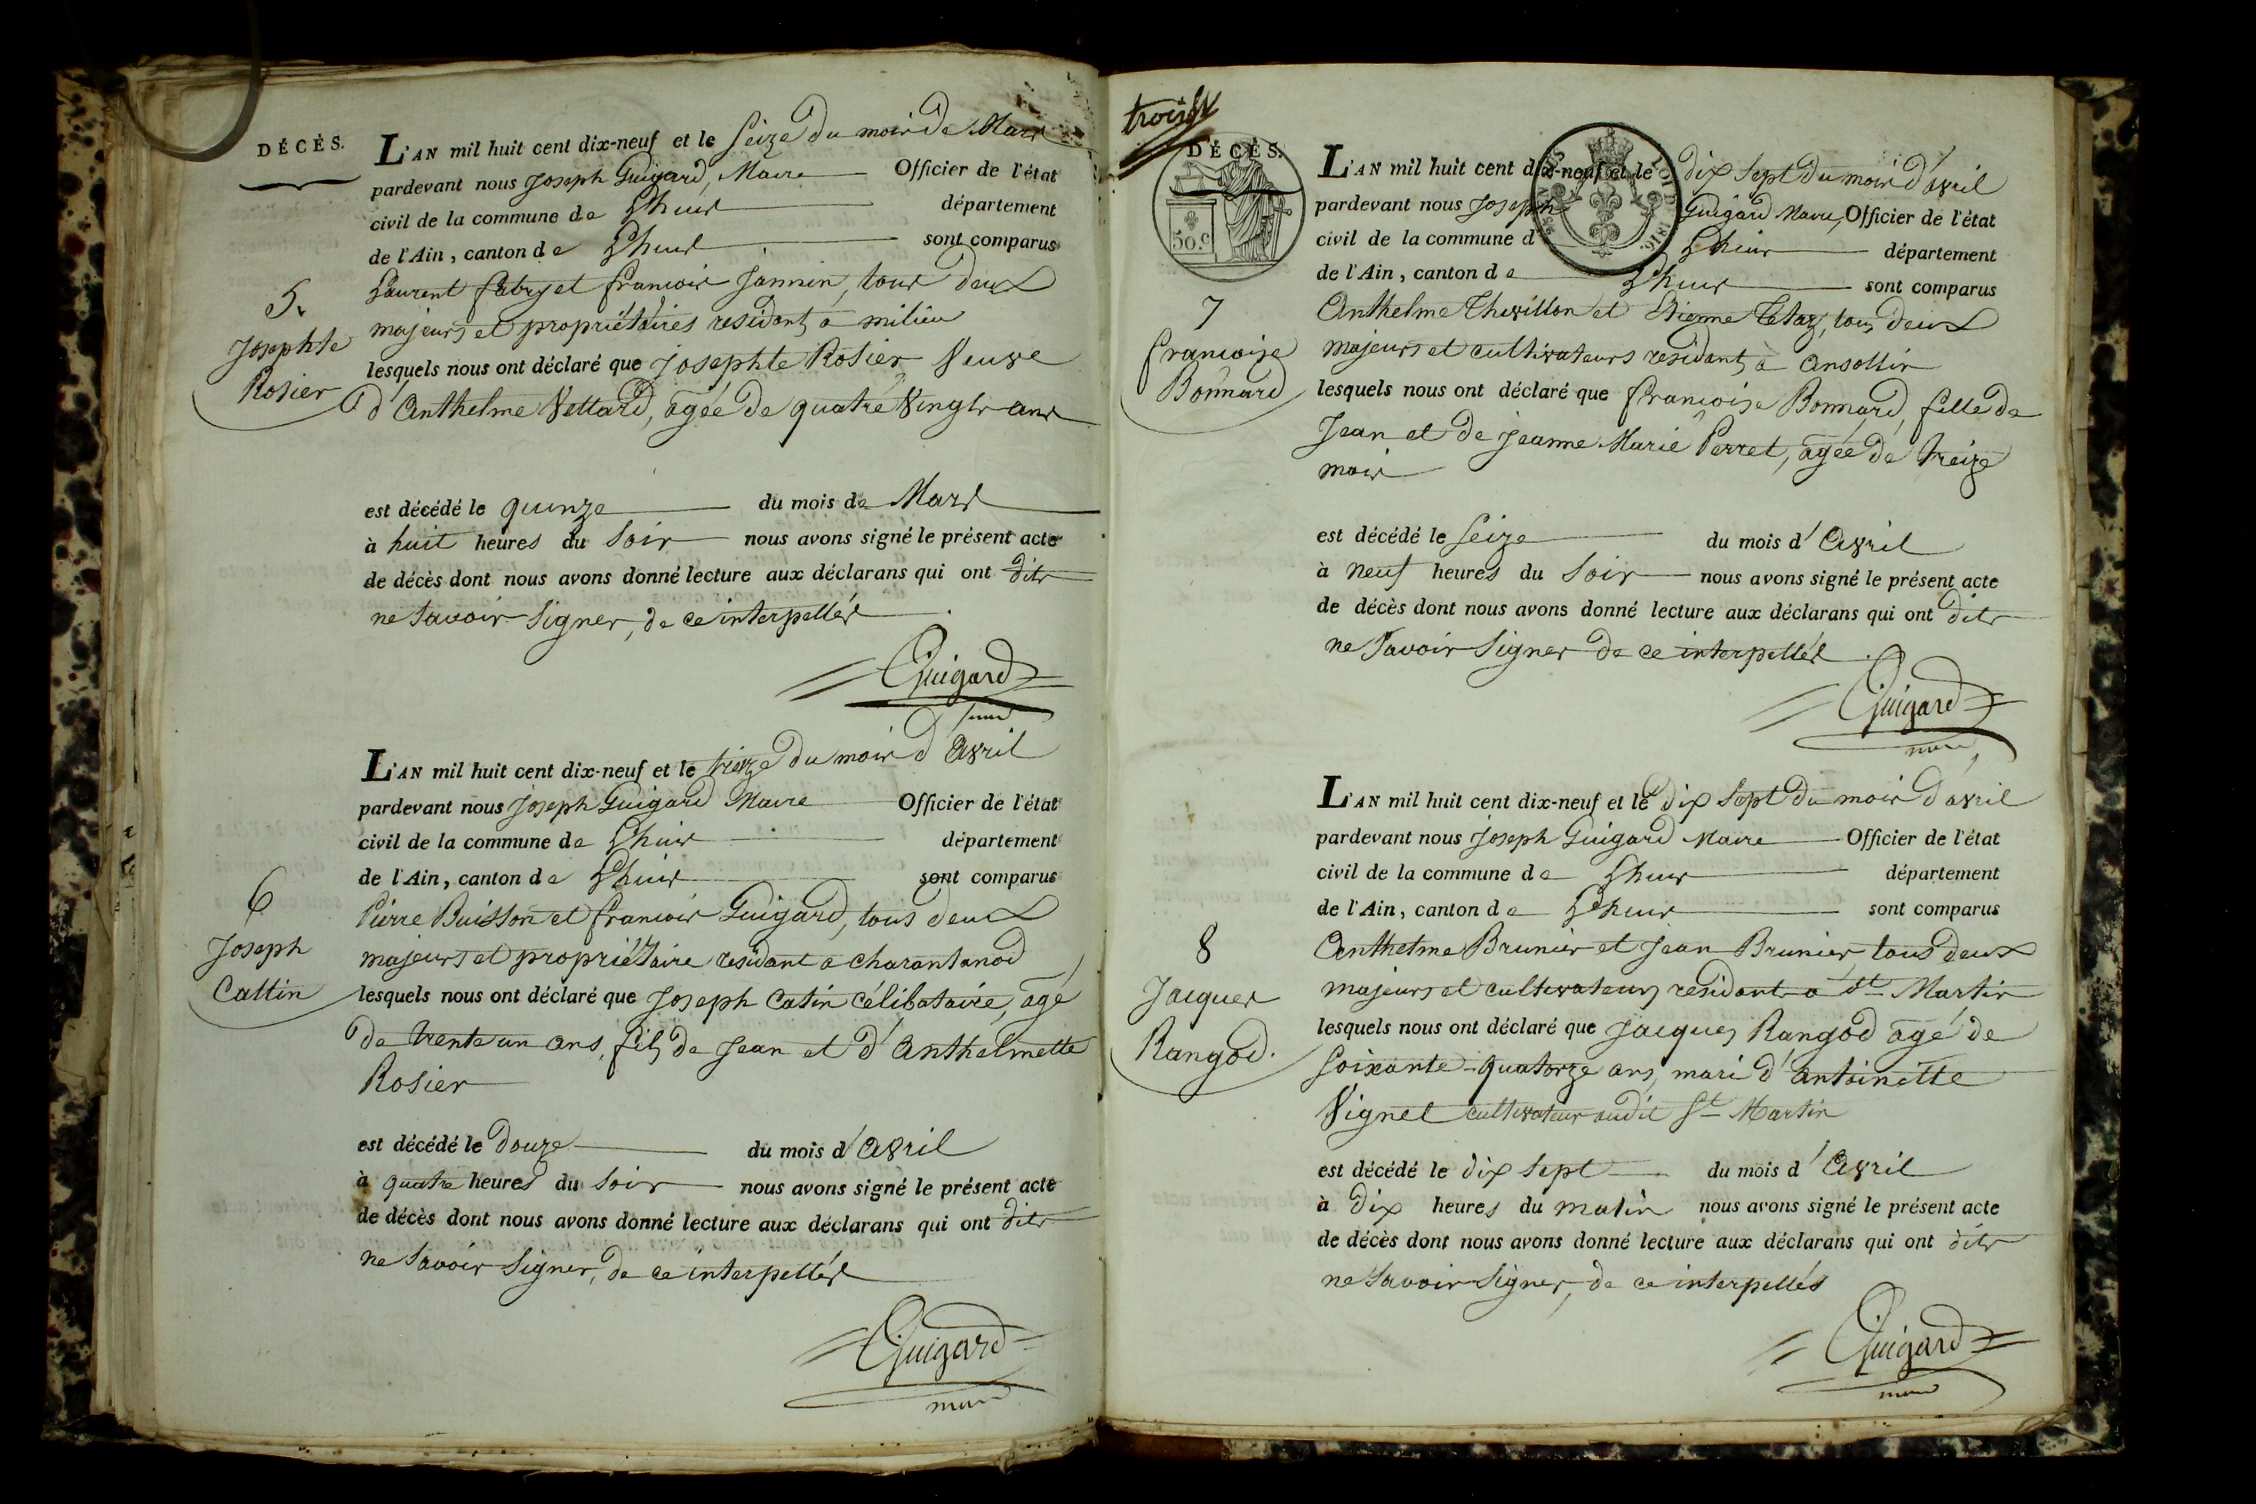 DÉCÈS.
L'AN mil huit cent dix-neuf et le Seize du mois de Mars
pardevant nous Joseph Guigard, Maire Officier de l'état
civil de la commune de Lhuis département
de l'Ain, canton de Lhuis sont comparus
Laurent fabry et francois Jannin, tous deux
majeurs et propriétaires residants à milieu
lesquels nous ont déclaré que Josephte Rosier Veuve
d'Anthelme Vettard, agée de quatre Vingts ans
5.
Josephte
Rosier
est décédé le quinze du mois de Mars
à huit heures du Soir nous avons signé le présent acte
de décès dont nous avons donné lecture aux déclarans qui ont dits
ne Savoir Signer, de ce interpellés
Guigard
L'AN mil huit cent dix-neuf et le treize du mois d'Avril
pardevant nous Joseph Guigard Maire Officier de l'état
civil de la commune de Lhuis département
de l'Ain, canton de Lhuis sont comparus
Pierre Buisson et francois Guigard, tous deux
majeurs et propriétaire residant a charantanod
lesquels nous ont déclaré que Joseph Catin célibataire, agé
de trente un ans, fils de Jean et d'Anthelmette
Rosier
6
Joseph
Cattin
est décédé le douze du mois d'Avril
à quatre heures du Soir nous avons signé le présent acte
de décès dont nous avons donné lecture aux déclarans qui ont dits
ne Savoir Signer, de ce interpellés
Guigard
maire
DÉCÈS.
50 c
LOI DE 1816.
L'AN mil huit cent dix-neuf et le dix Sept du mois d'avril
pardevant nous Joseph Guigard Maire, Officier de l'état
civil de la commune d Lhuis département
de l'Ain, canton de Lhuis sont comparus
Anthelme Thevillon et Etienne Tetaz, tous deux
majeurs et cultivateurs residants à ansollin
lesquels nous ont déclaré que francoise Bonnard, fille de
Jean et de Jeanne Marie Perret, agée de treize
mois
7
francoise
Bonnard
est décédé le Seize du mois d'Avril
à neuf heures du Soir nous avons signé le présent acte
de décès dont nous avons donné lecture aux déclarans qui ont dits
ne Savoir Signer de ce interpellés
Guigard
maire
L'AN mil huit cent dix-neuf et le dix Sept du mois d'avril
pardevant nous Joseph Guigard Maire Officier de l'état
civil de la commune de Lhuis département
de l'Ain, canton de Lhuis sont comparus
Anthelme Brunier et Jean Brunier tous deux
majeurs et cultivateurs residants a St Martin
lesquels nous ont déclaré que Jacques Rangod agé de
Soixante-quatorze ans, mari d'antoinette
Vignet cultivateur audit St Martin
8
Jacques
Rangod.
est décédé le dix Sept du mois d'Avril
à dix heures du matin nous avons signé le présent acte
de décès dont nous avons donné lecture aux déclarans qui ont dits
ne Savoir Signer, de ce interpellés
Guigard
maire